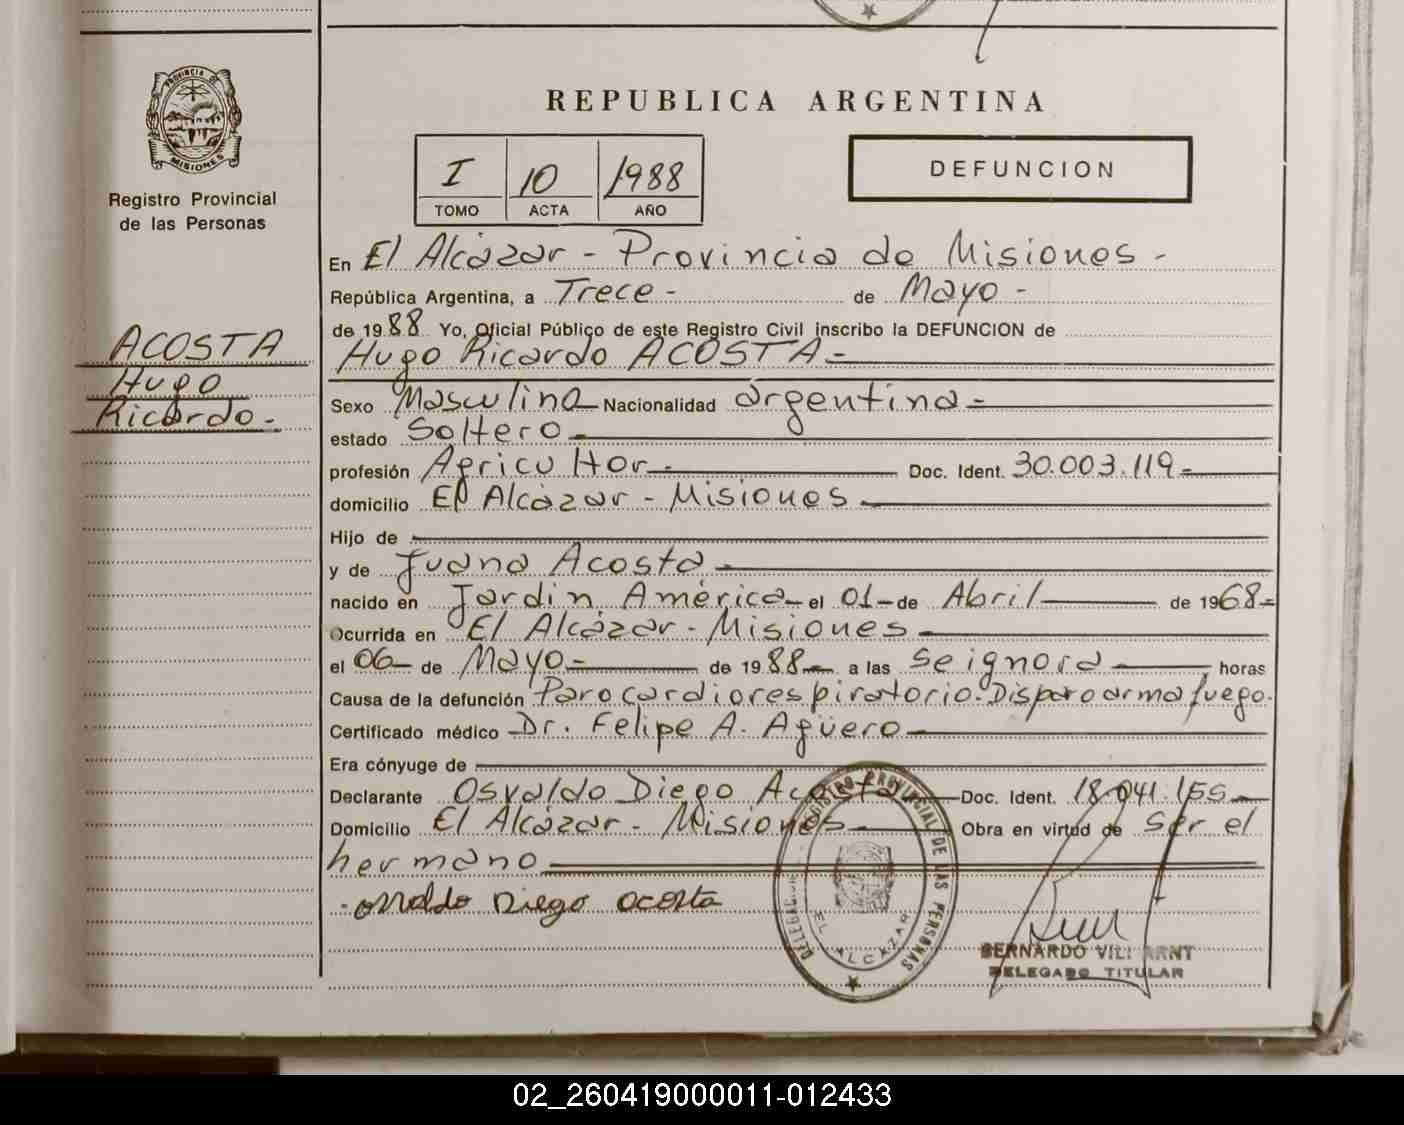 PROVINCIA DE
MISIONES
Registro Provincial
de las Personas
ACOSTA
Hugo
Ricardo.-
REPUBLICA ARGENTINA
I 10 1988
TOMO ACTA AÑO
DEFUNCION
En El Alcázar - Provincia de Misiones -
República Argentina, a Trece - de Mayo -
de 1988 Yo, Oficial Público de este Registro Civil inscribo la DEFUNCION de
Hugo Ricardo ACOSTA -
Sexo Masculino Nacionalidad argentina -
estado Soltero -
profesión Agricultor - Doc. Ident. 30.003.119 -
domicilio El Alcázar - Misiones
Hijo de
y de Juana Acosta
nacido en Jardin América - el 01 - de Abril de 1968 -
Ocurrida en El Alcázar - Misiones
el 06 - de Mayo - de 1988 - a las se ignora horas
Causa de la defunción Paro cardiorespiratorio. Disparo arma fuego.
Certificado médico Dr. Felipe A. Agüero -
Era cónyuge de
Declarante Osvaldo Diego Acosta Doc. Ident. 18.041.155 -
Domicilio El Alcázar - Misiones Obra en virtud de ser el
hermano
osvaldo Diego acosta
DELEGACION REGISTRO PROVINCIAL DE LAS PERSONAS
EL ALCAZAR
BERNARDO
DELEGADO TITULAR
02_260419000011-012433